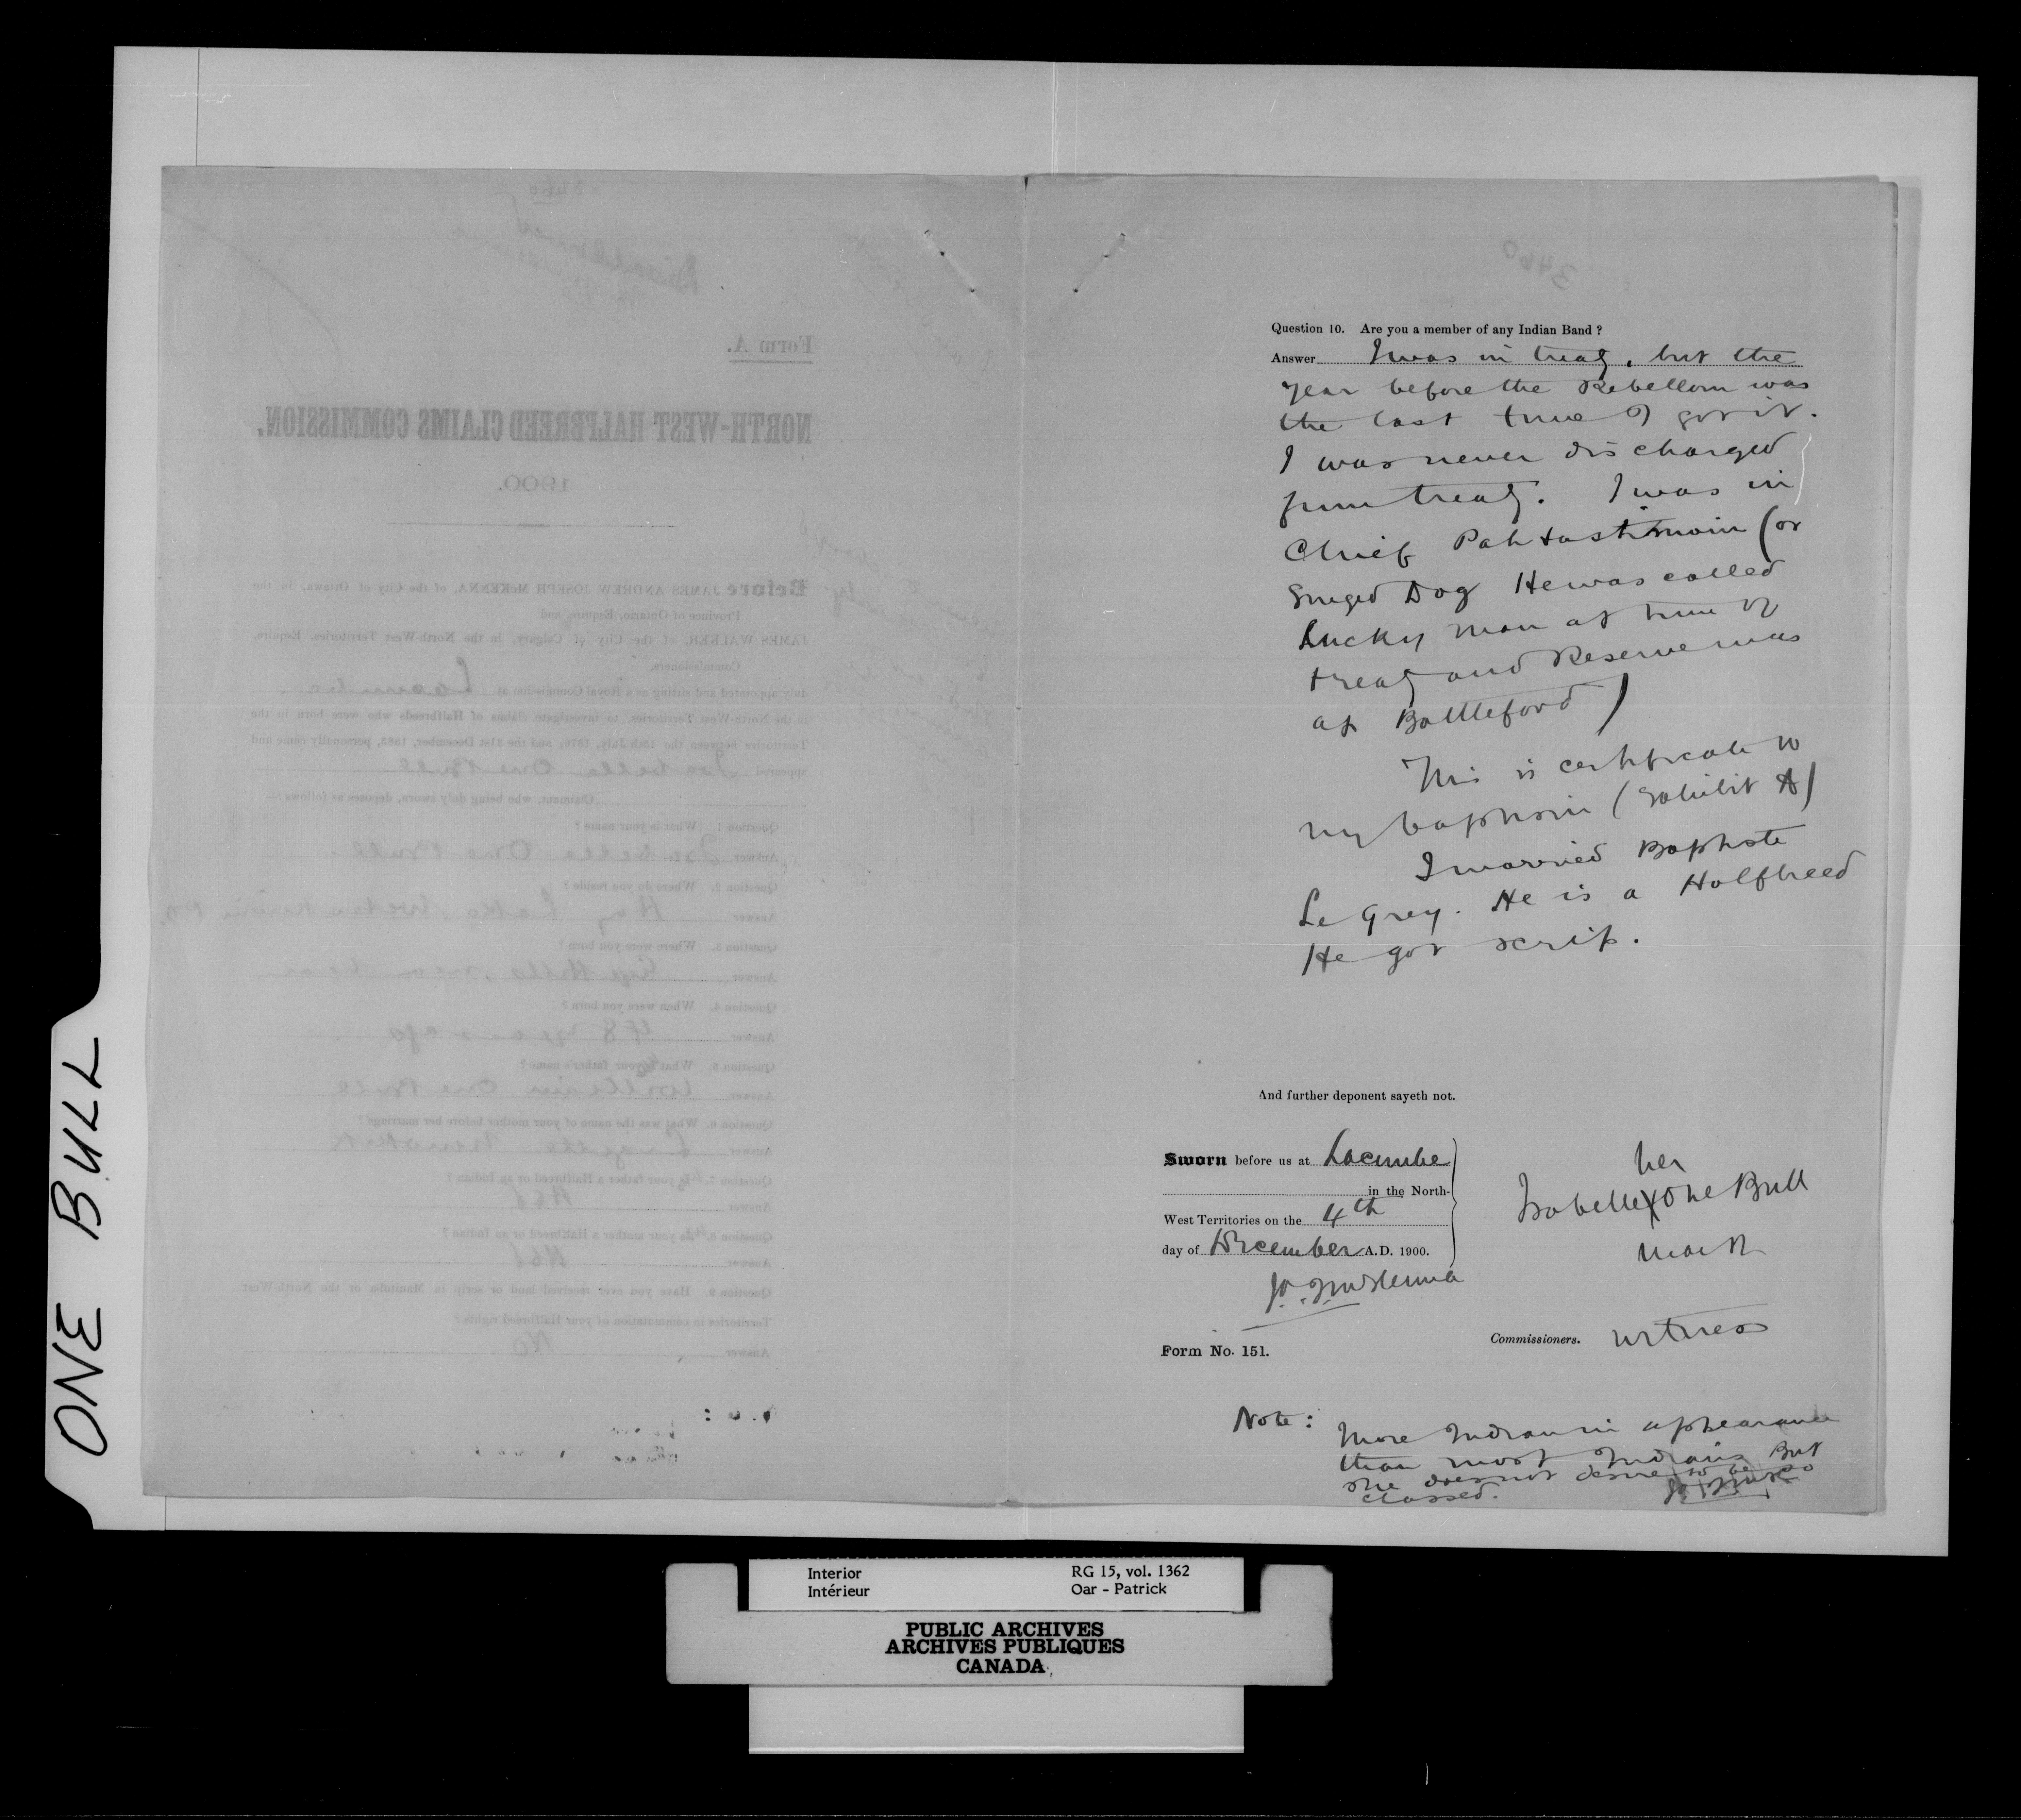 ONE BULL
Form A.
NORTH-WEST HALFBREED CLAIMS COMMISSION.
1900.
Before JAMES ANDREW JOSEPH McKENNA, of the City of Ottawa, in the
Province of Ontario, Esquire, and
JAMES WALKER, of the City of Calgary, in the North-West Territories, Esquire,
Commissioners,
duly appointed and sitting as a Royal Commission at Lacombe
in the North-West Territories, to investigate claims of Halfbreeds who were born in the
Territories between the 15th July, 1870, and the 31st December, 1885, personally came and
appeared Isabelle One Bull
Claimant, who being duly sworn, deposes as follows:—
Question 1. What is your name?
Answer Isabelle One Bull
Question 2. Where do you reside?
Answer Hay Lake
Question 3. Where were you born?
Answer
Question 4. When were you born?
Answer 48 years ago
Question 5. What your father's name?
Answer William One Bull
Question 6. What was the name of your mother before her marriage?
Answer
Question 7. your father a Halfbreed or an Indian?
Answer Hbd
Question 8. your mother a Halfbreed or an Indian?
Answer Hbd
Question 9. Have you ever received land or scrip in Manitoba or the North-West
Territories in commutation of your Halfbreed rights?
Answer No
3460
Question 10. Are you a member of any Indian Band?
Answer I was in treaty, but the
year before the Rebellion was
the last time I got it.
I was never discharged
from treaty. I was in
Chief (or
Singed Dog He was called
Lucky Man at time of
treaty and Reserve was
at Battleford)
This is certificate to
my baptism (Exhibit A)
I married Baptiste
Le Grey. He is a Halfbreed
He got scrip.
And further deponent sayeth not.
Sworn before us at Lacombe
in the North-
West Territories on the 4th
day of December A.D. 1900.
J.A.J. McKenna
her
Isabelle X One Bull
mark
Commissioners. witness
Form No. 151.
Note: More Indian in appearance
than most Indians But
she does not desire to be so
classed.
Interior RG 15, vol. 1362
Intérieur Oar - Patrick
PUBLIC ARCHIVES
ARCHIVES PUBLIQUES
CANADA